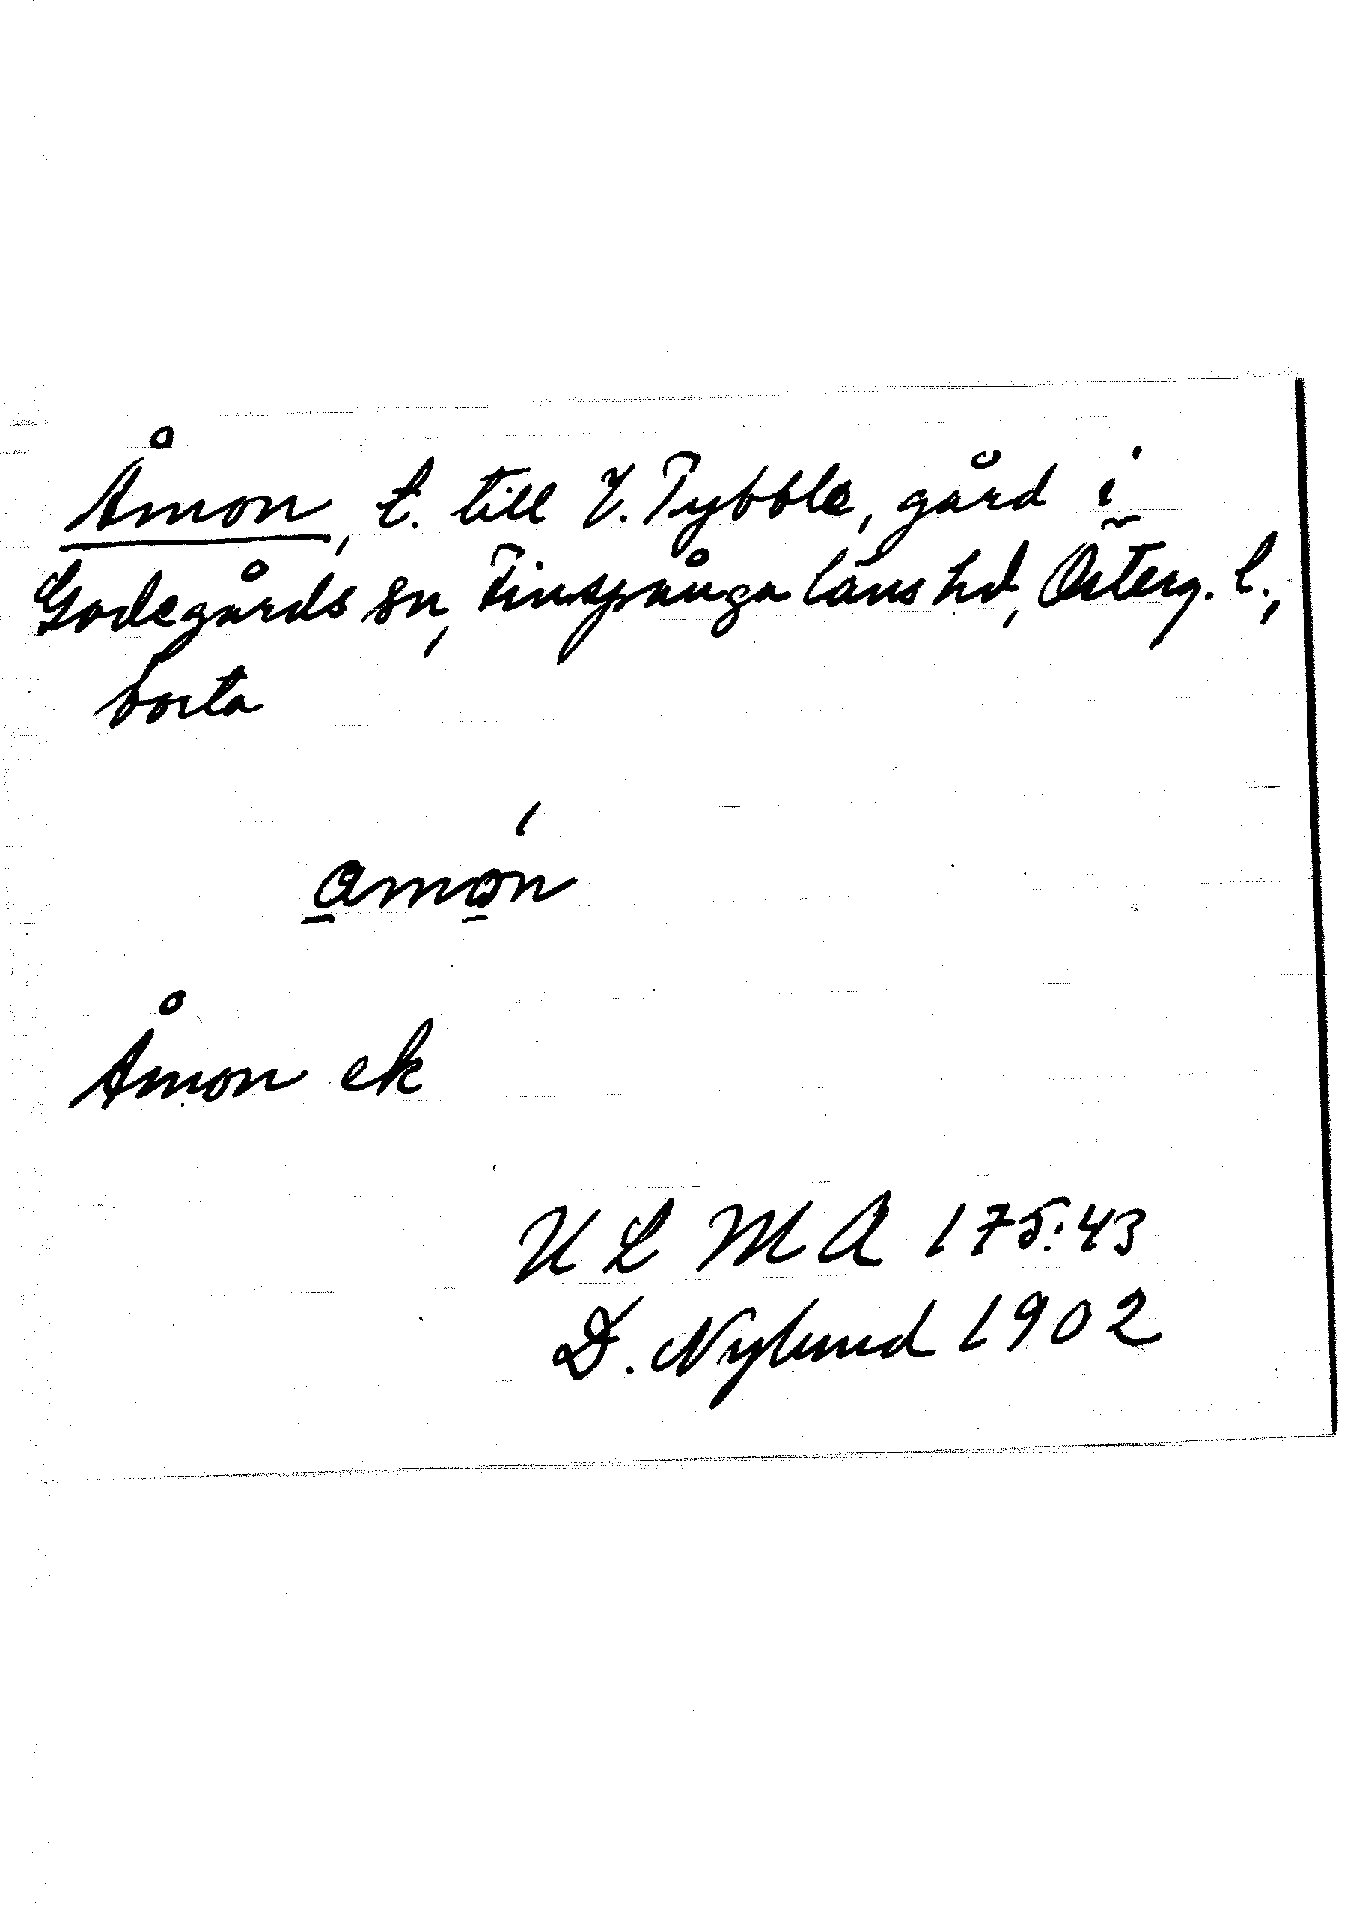 Åmon, t. till V. Tybble, gård i
Godegårds sn, Finspånga läns hd, Österg. l.,
borta
amón
Åmon ek
ULMA 175:43
D. Nylund 1902